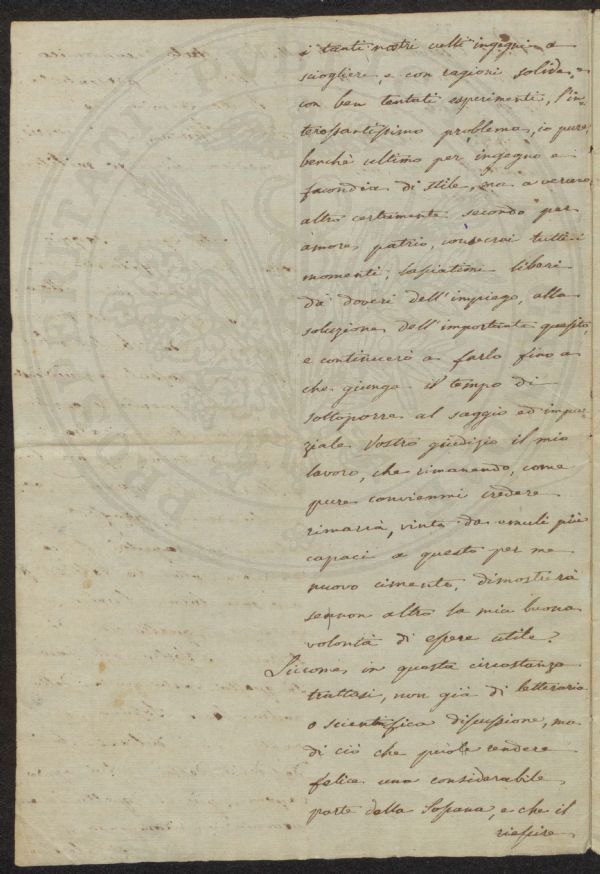 i tanti nostri culti ingegni a
sciogliere, e con ragioni solide, e
con ben tentati esperimenti, l'in-
teressantissimo problema, io pure,
benchè ultimo per ingegno e
facondia di stile, ma a verun
altro certamente secondo per
amore patrio, consecrai tutti i
momenti, lasciatimi liberi
da doveri dell'impiego, alla
soluzione dell'importante quesito,
e continuerò a farlo fino a
che giunga il tempo di
sottoporre al saggio ed impar-
ziale Vostro giudizio il mio
lavoro, che rimanendo, come
pure convienmi credere
rimarrà, vinto da emuli più
capaci a questo per me
nuovo cimento, dimostrerà
sennon altro la mia buona
volontà di essere utile.
Siccome in questa circostanza
trattasi, non già di letteraria
o scientifica discussione, ma
di ciò che puole rendere
felice una considerabile
parte della Toscana, e che il
riescire
PROSPERITATI PUBLICAE